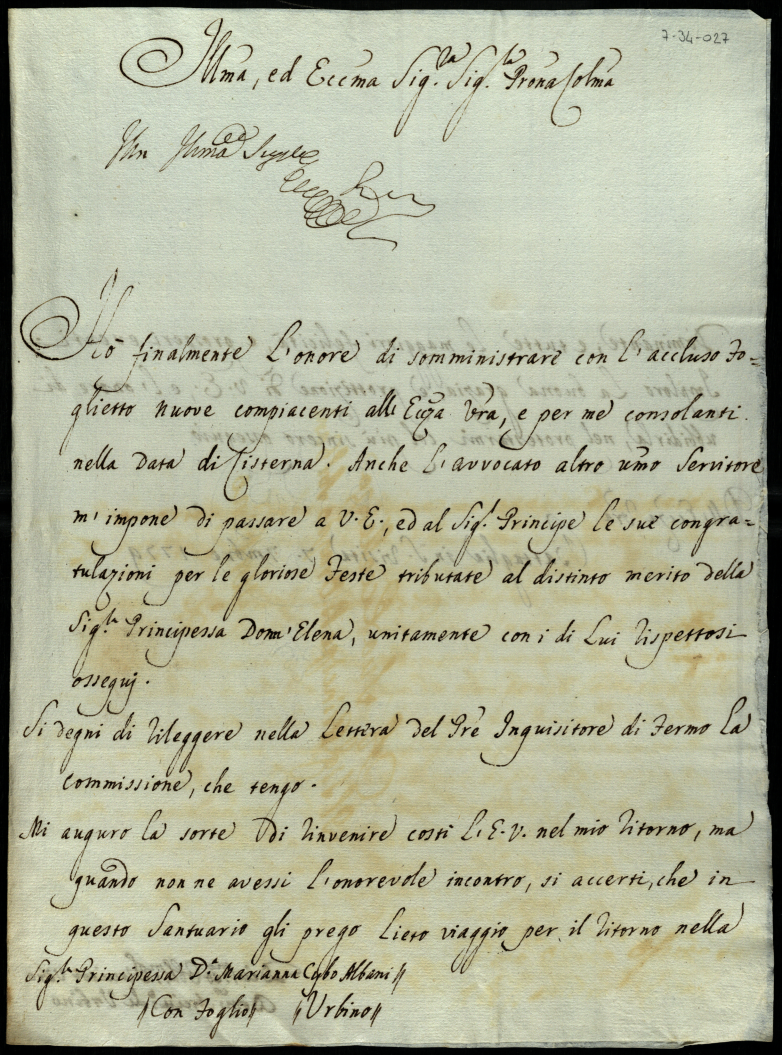 7-34-027
Illma, ed Eccma Sig.ra Sig.ra Prona Colma
Hò finalmente l'onore di somministrare con l'accluso fo=
glietto nuove compiacenti all' Ecza Vra, e per me consolanti
nella data di Cisterna. Anche l'avvocato altro umo Servitore
m'impone di passare a V. E., ed al Sig.r Principe le sue congra=
tulazioni per le gloriose feste tributate al distinto merito della
Sig.ra Principessa Donn' Elena, unitamente con i di Lui rispettosi
ossequj.
Si degni di rileggere nella lettera del Pre Inquisitore di Fermo la
commissione, che tengo.
Mi auguro la sorte di rinvenire costì l'E. V. nel mio ritorno, ma
quando non ne avessi l'onorevole incontro, si accerti, che in
questo Santuario gli prego lieto viaggio per il ritorno nella
Sig.ra Principessa D.a Marianna Cybo Albani //
// Con foglio // // Urbino //